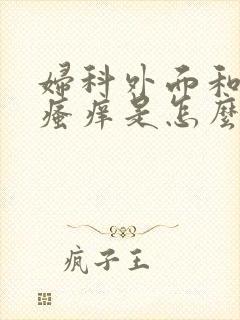 婦科外而和
瘙痒是怎麼
疯子王